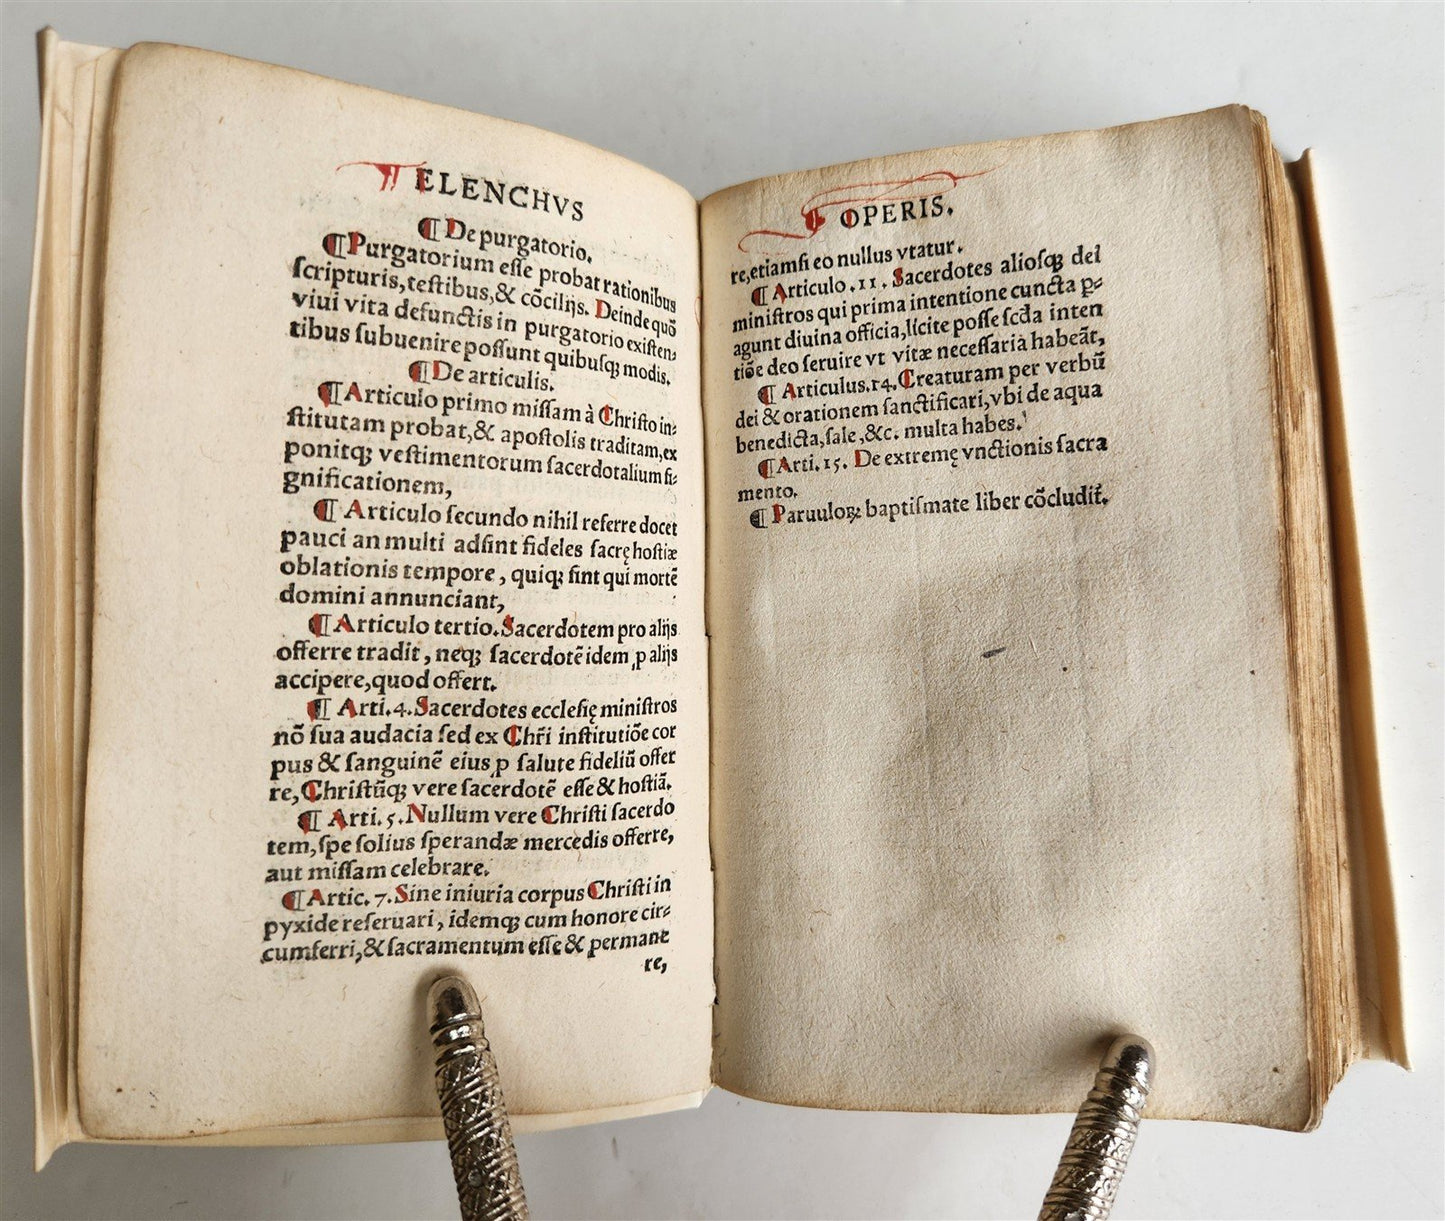 ELENCHVS
¶ De purgatorio.
¶ Purgatorium eſſe probat rationibus
ſcripturis, teſtibus, & cōcilijs. Deinde quō
viui vita defunctis in purgatorio exiſten⸗
tibus ſubuenire poſſunt quibuſqꝫ modis.
¶ De articulis.
¶ Articulo primo miſſam à Chriſto in⸗
ſtitutam probat, & apoſtolis traditam, ex
ponitqꝫ veſtimentorum ſacerdotalium ſi⸗
gnificationem,
¶ Articulo ſecundo nihil referre docet
pauci an multi adſint fideles ſacrę hoſtiæ
oblationis tempore, quiqꝫ ſint qui mortē
domini annunciant,
¶ Articulo tertio. Sacerdotem pro alijs
offerre tradit, neqꝫ ſacerdotē idem ꝓ alijs
accipere, quod offert.
¶ Arti. 4. Sacerdotes eccleſię miniſtros
nō ſua audacia ſed ex Chr̄i inſtitutiōe cor
pus & ſanguinē eius ꝓ ſalute fideliū offer
re, Chriſtūqꝫ vere ſacerdotē eſſe & hoſtiā.
¶ Arti. 5. Nullum vere Chriſti ſacerdo
tem, ſpe ſolius ſperandæ mercedis offerre,
aut miſſam celebrare.
¶ Artic. 7. Sine iniuria corpus Chriſti in
pyxide reſeruari, idemqꝫ cum honore cir⸗
cumferri, & ſacramentum eſſe & permane
re,
OPERIS.
re, etiamſi eo nullus vtatur.
¶ Articulo .11. Sacerdotes alioſqꝫ dei
miniſtros qui prima intentione cuncta ꝑ⸗
agunt diuina officia, licite poſſe ſcd̄a inten
tiōe deo ſeruire vt vitæ neceſſaria habeāt,
¶ Articulus. 14. Creaturam per verbū
dei & orationem ſanctificari, vbi de aqua
benedicta, ſale, &c. multa habes.
¶ Arti. 15. De extremę vnctionis ſacra
mento.
¶ Paruuloꝝ baptiſmate liber cōcludit̄.